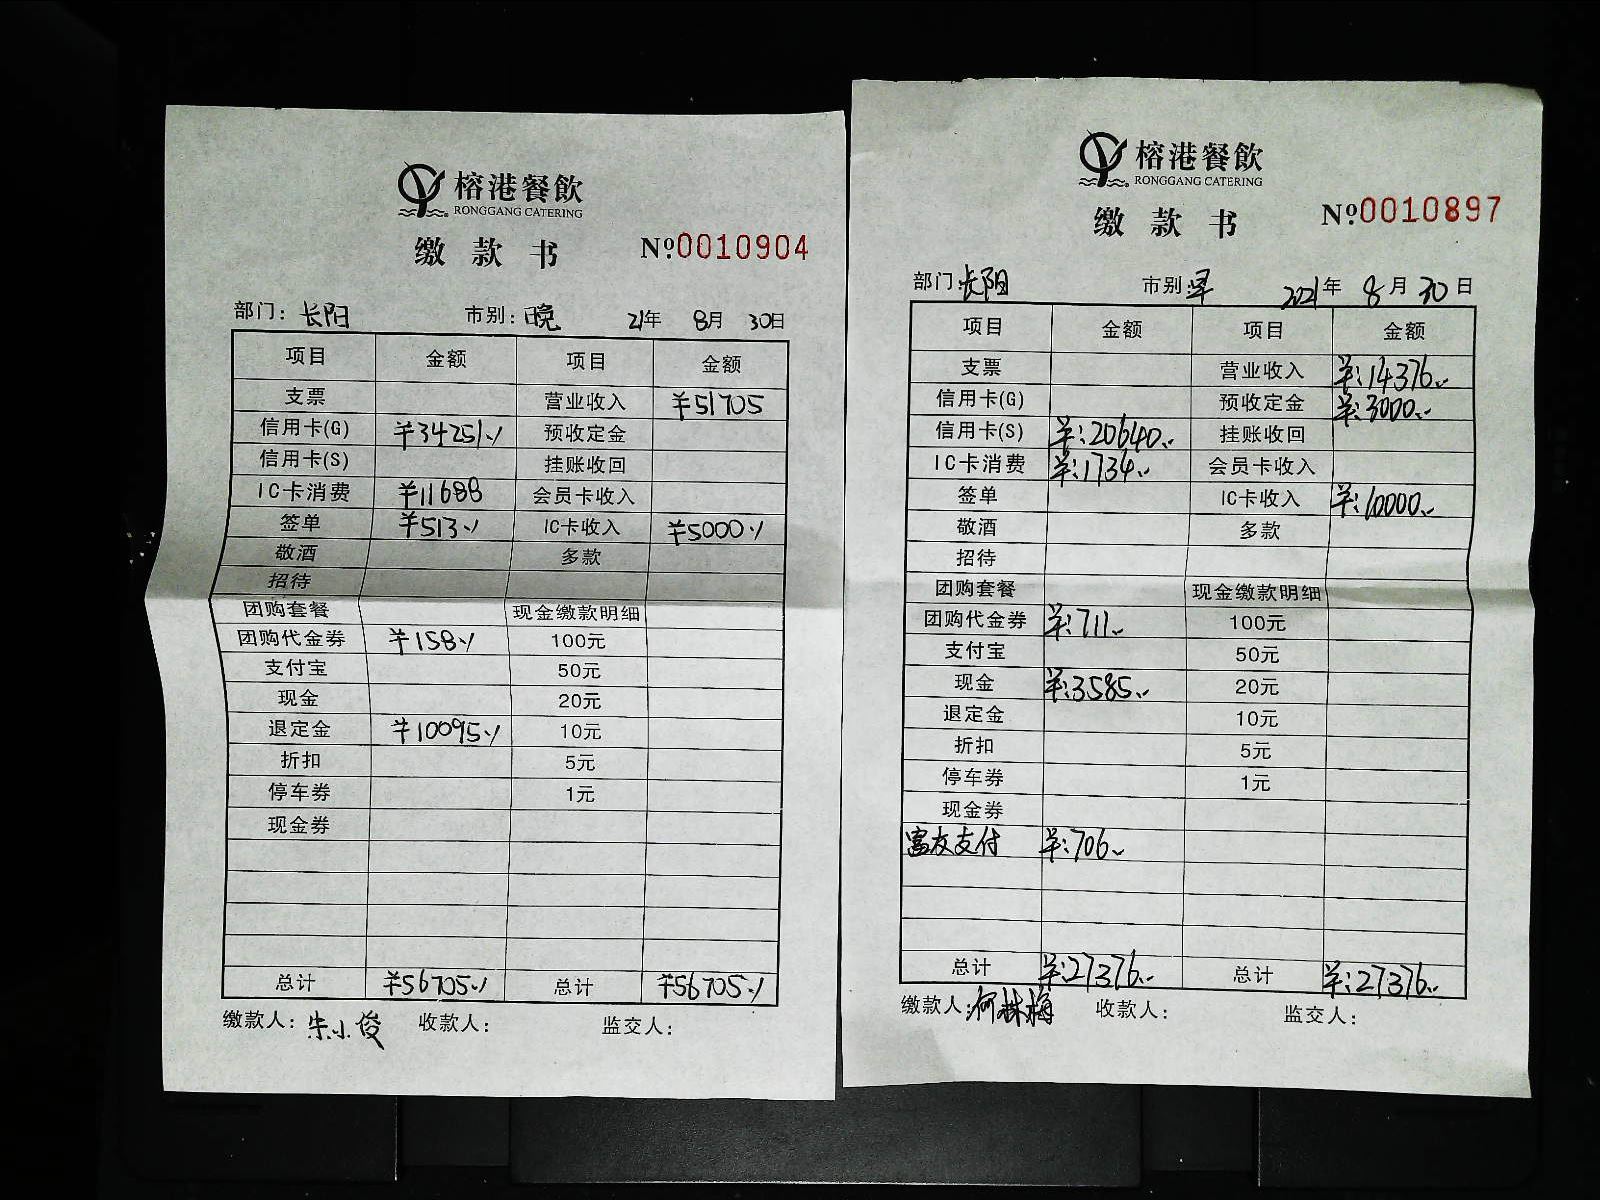 榕港餐飲
RONGGANG CATERING
缴款书 №0010904
部门：长阳 市别：晚 21年 8月 30日
项目 金额 项目 金额
支票 营业收入 ¥51705
信用卡(G) ¥34251 预收定金
信用卡(S) 挂账收回
IC卡消费 ¥11688 会员卡收入
签单 ¥513 IC卡收入 ¥5000
敬酒 多款
招待
团购套餐 现金缴款明细
团购代金券 ¥158 100元
支付宝 50元
现金 20元
退定金 ¥10095 10元
折扣 5元
停车券 1元
现金券
总计 ¥56705 总计 ¥56705
缴款人：朱小俊 收款人： 监交人：
榕港餐飲
RONGGANG CATERING
缴款书 №0010897
部门：长阳 市别：早 2021年 8月 30日
项目 金额 项目 金额
支票 营业收入 ¥:14376
信用卡(G) 预收定金 ¥:3000
信用卡(S) ¥:20640 挂账收回
IC卡消费 ¥:1734 会员卡收入
签单 IC卡收入 ¥:10000
敬酒 多款
招待
团购套餐 现金缴款明细
团购代金券 ¥:711 100元
支付宝 50元
现金 ¥:3585 20元
退定金 10元
折扣 5元
停车券 1元
现金券
富友支付 ¥:706
总计 ¥:27376 总计 ¥:27376
缴款人：何林梅 收款人： 监交人：